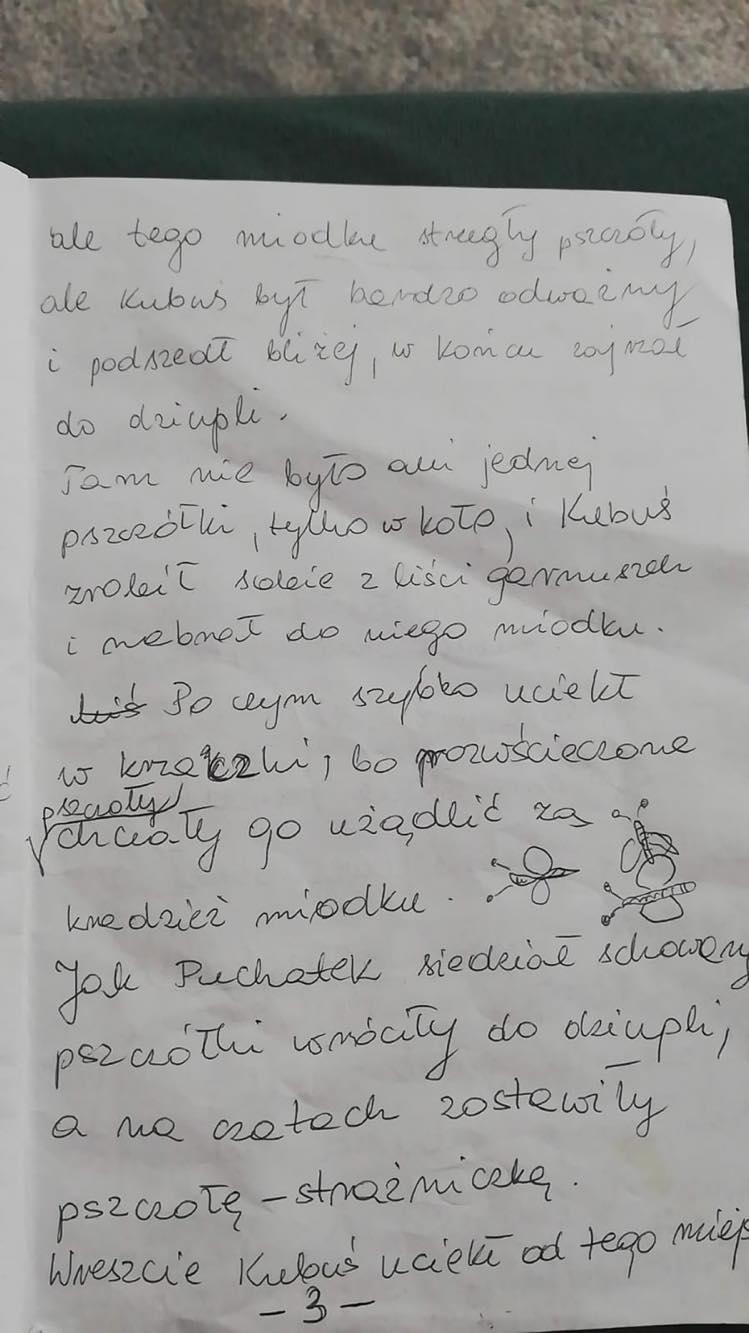 ale tego miodku strzegły pszczoły,
ale Kubuś był bardzo odważny
i podszedł bliżej, w końcu zajrzał
do dziupli.
Tam nie było ani jednej
pszczółki, tylko w koło, i Kubuś
zrobił sobie z liści garnuszek
i nabrał do niego miodku.
Po czym szybko uciekł
w krzaczki, bo rozwścieczone
pszczoły
chciały go użądlić za
kradzież miodku.
Jak Puchatek siedział schowany
pszczółki wróciły do dziupli,
a na czatach zostawiły
pszczołę – strażniczkę.
Wreszcie Kubuś uciekł od tego miejs
- 3 -